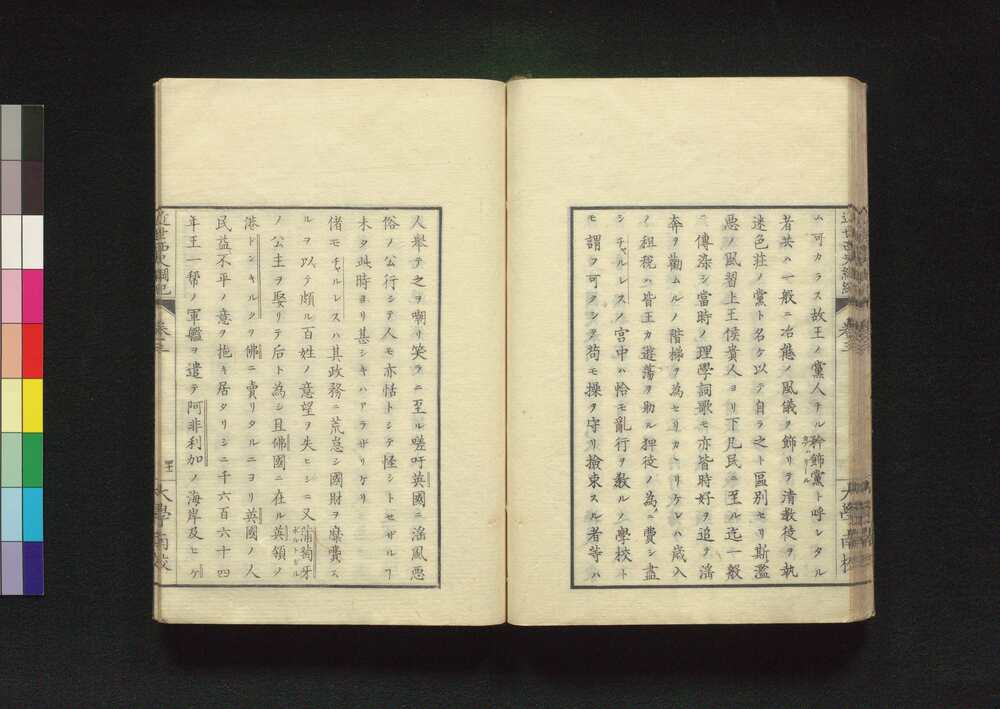 ム可カラス故王ノ黨人チル幹飾黨ト呼レタル
者共ハ一般ニ冶態ノ風儀ヲ飾リテ清教徒ヲ執
迷色莊ノ黨ト名ケ以テ自ラ之ト區別セリ斯濫
悪ノ風習上王侯貴人ヨリ下凡民ニ至ル迄一般
ニ傳染シ當時ノ理學詞歌モ亦皆時好ヲ追ヲ淫
奔ヲ勸ムルノ階梯ヲ為セリカヽリケレハ歳入
ノ租税ハ皆王カ遊蕩ヲ助ル狎徒ノ為ニ費シ盡
シチャルレスノ宮中ハ恰モ亂行ヲ教ルノ學校ト
モ謂フ可クシテ苟モ操ヲ守リ撿束スル者等ハ
人舉テ之ヲ嘲リ笑ラニ至ル嗟吁英國ニ淫風悪
俗ノ公行シテ人モ亦恬トシテ怪シトセザルヿ
未タ此時ヨリ甚シキハアラザリケリ
偖モチャルレスハ其政務ニ荒怠シ國財ヲ糜費ス
ルヲ以テ頗ル百姓ノ意望ヲ失ヒシニ又蒲萄牙
ポルトガル
ノ公主ヲ娶リテ后ト為シ且佛國ニ在ル英領ノ
港ドンキルクヲ佛ニ賣リタルニヨリ英國ノ人
民益不平ノ意ヲ抱キ居タリシニ千六百六十四
年王一帮ノ軍艦ヲ遣テ阿非利加ノ海岸及ヒゲ
近世西史綱紀
卷三